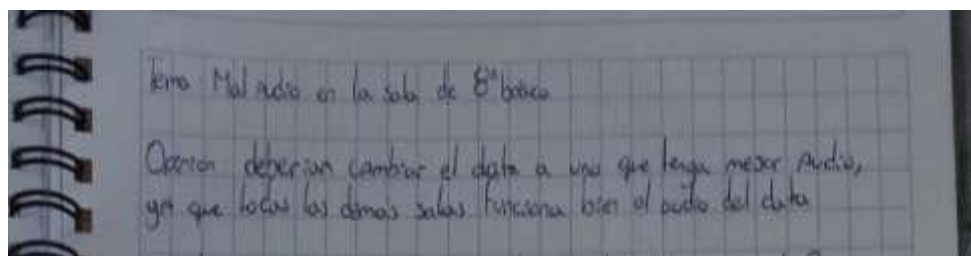 Tema: Mal audio en la sala de 8° básico
Opinión: deberian cambiar el data a uno que tenga mejor Audio,
ya que todas las demás salas funciona bien el audio del data